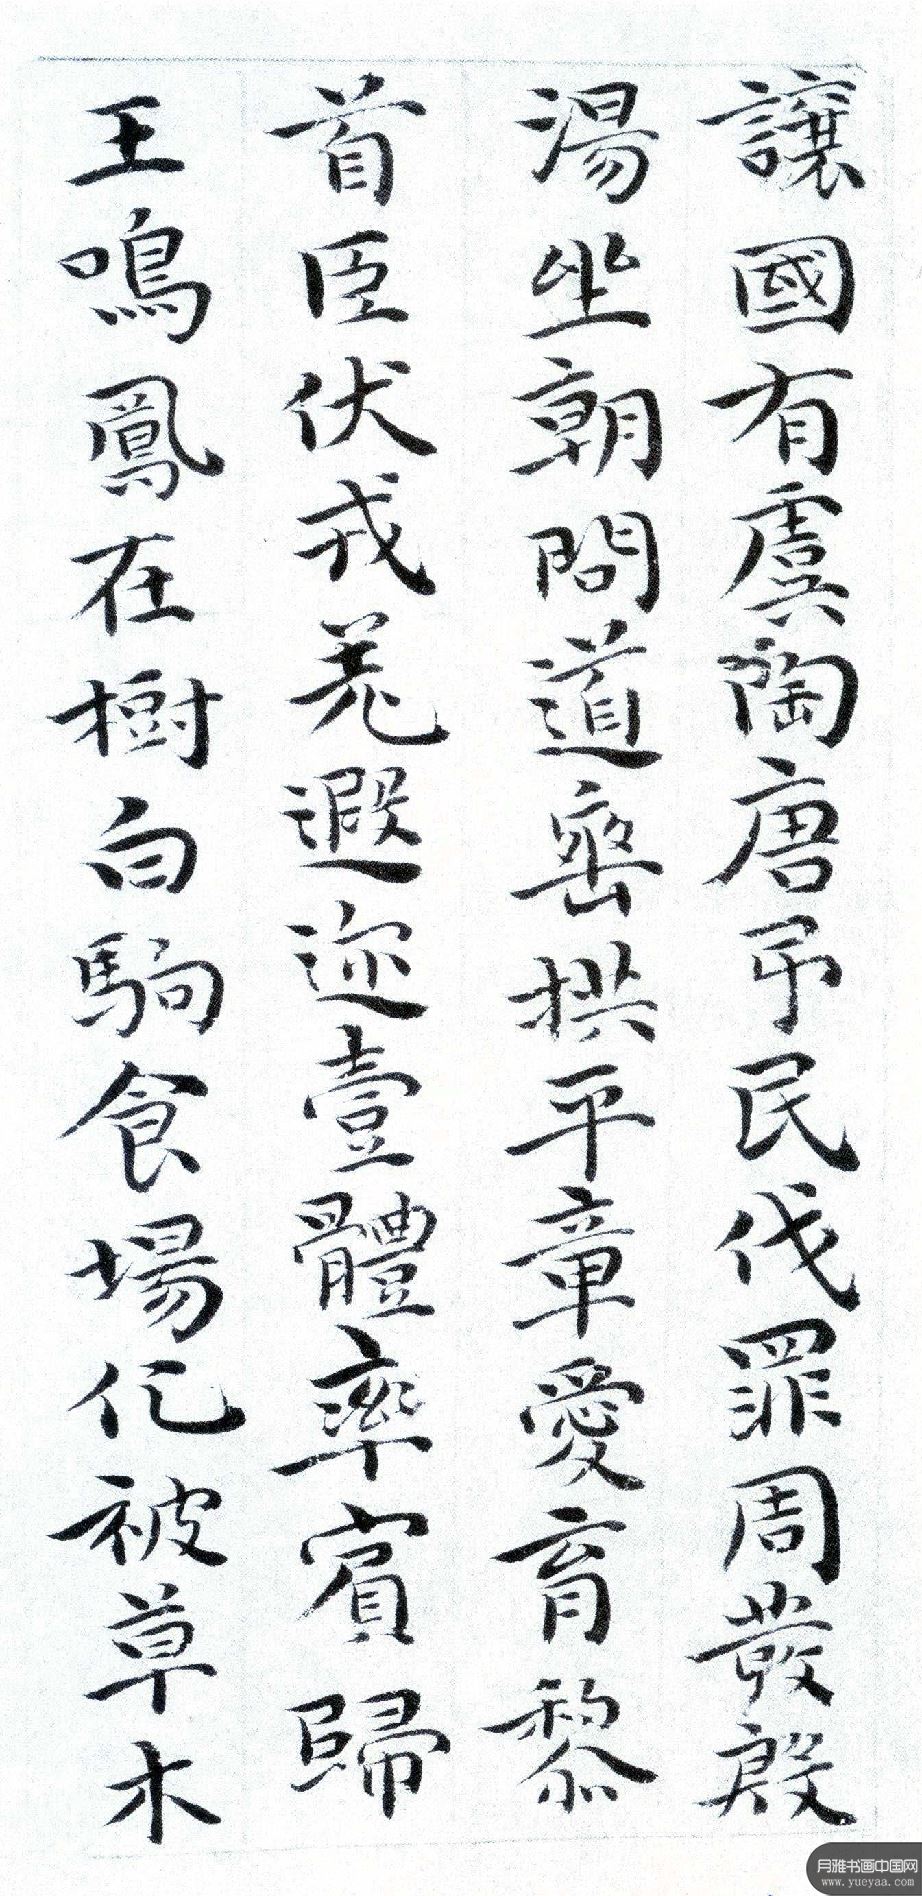 讓國有虞陶唐弔民伐罪周發殷
湯坐朝問道垂拱平章愛育黎
首臣伏戎羌遐迩壹體率賓歸
王鳴鳳在樹白駒食場化被草木
月雅书画中国网
www.yueyaa.com